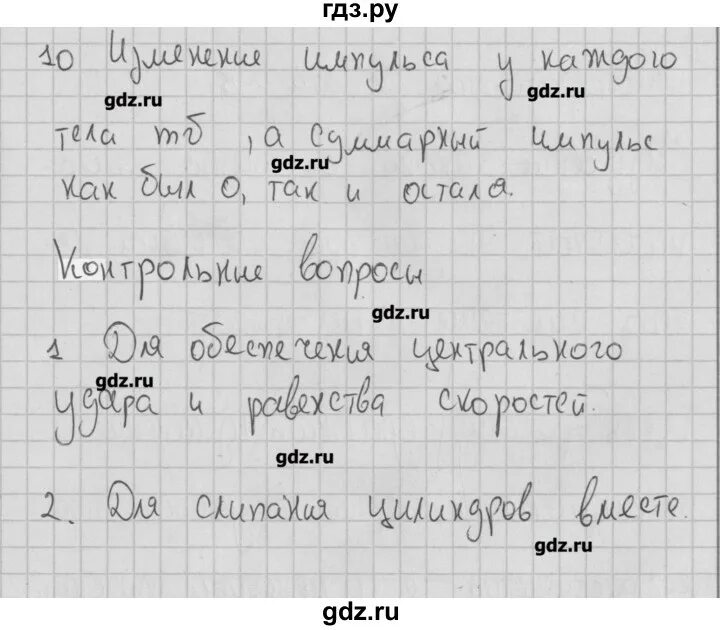 гдз.ру
10 Изменение импульса у каждого
gdz.ru
gdz.ru
тела mб, а суммарный импульс
gdz.ru
как был 0, так и остала.
Контрольные вопросы
gdz.ru
1 Для обеспечения центрального
gdz.ru
удара и равенства скоростей.
gdz.ru
2. Для слипания цилиндров вместе.
gdz.ru
gdz.ru